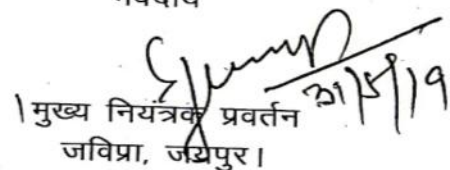 भवदीय
31/5/19
मुख्य नियंत्रक प्रवर्तन
जविप्रा, जयपुर।